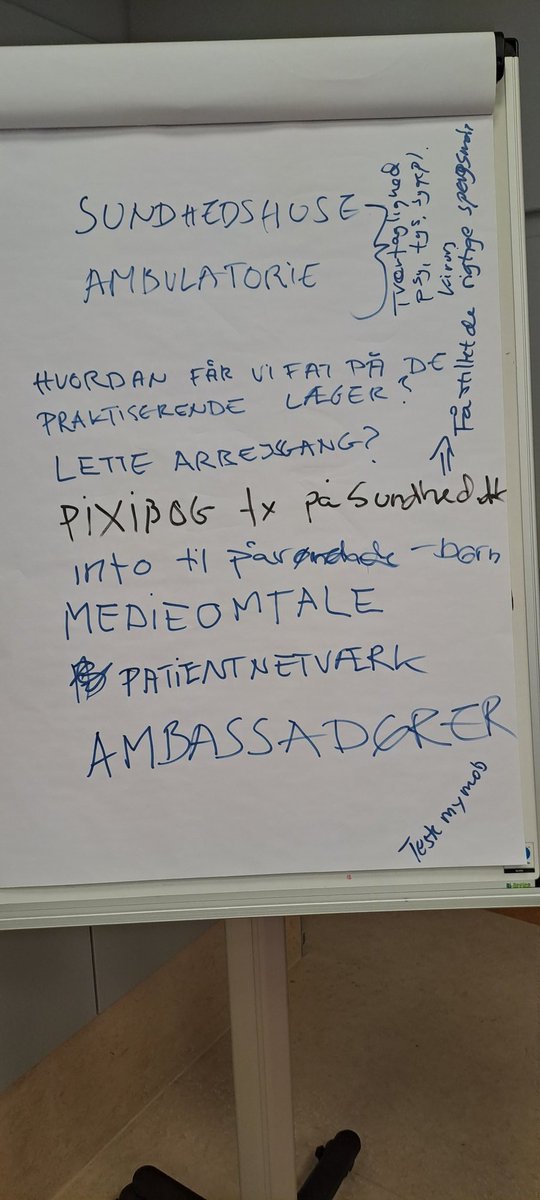 SUNDHEDSHUSE
AMBULATORIE
Tværfaglighed
psy, fys. sygepl.
kirop
Få stillet de rigtige spørgsmål
HVORDAN FÅR VI FAT PÅ DE
PRAKTISERENDE LÆGER?
LETTE ARBEJSGANG?
⇒
PIXIBOG fx på Sundhed.dk
info til pårørende - børn
MEDIEOMTALE
PATIENTNETVÆRK
AMBASSADØRER
Test my mob